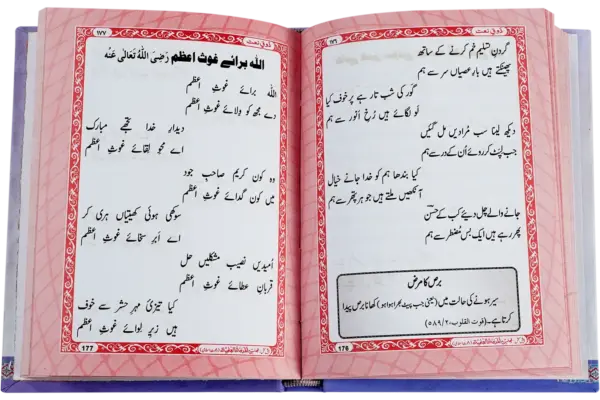 ذوقِ نعت
١٧٦
گردنِ تسلیم خم کرنے کے ساتھ
پھینکتے ہیں بارِ عصیاں سر سے ہم
گور کی شب تار ہے پر خوف کیا
لَو لگائے ہیں رُخِ اَنور سے ہم
دیکھ لینا سب مُرادیں مل گئیں
جب لپٹ کر روئے اُن کے در سے ہم
کیا بندھا ہم کو خدا جانے خیال
آنکھیں ملتے ہیں جو ہر پتھر سے ہم
جانے والے چل دئیے کب کے حسنؔ
پھر رہے ہیں ایک بس مُضطر سے ہم
برص کا مرض
سیر ہونے کی حالت میں (یعنی جب پیٹ بھرا ہوا ہو) کھانا برص پیدا
کرتا ہے۔ (قوت القلوب، ٢/٥٨٩)
176
ذوقِ نعت
١٧٧
اللہ برائے غوثِ اعظم رَضِیَ اللّٰہُ تَعَالٰی عَنْہ
اللہ برائے غوثِ اعظم
دے مجھ کو وِلائے غوثِ اعظم
دیدارِ خدا تجھے مبارک
اے محوِ لقائے غوثِ اعظم
وہ کون کریم صاحبِ جود
میں کون گدائے غوثِ اعظم
سوکھی ہوئی کھیتیاں ہری کر
اے ابرِ سخائے غوثِ اعظم
اُمیدیں نصیب مشکلیں حل
قربان عطائے غوثِ اعظم
کیا تیزیِ مہرِ حشر سے خوف
ہیں زیرِ لوائے غوثِ اعظم
177